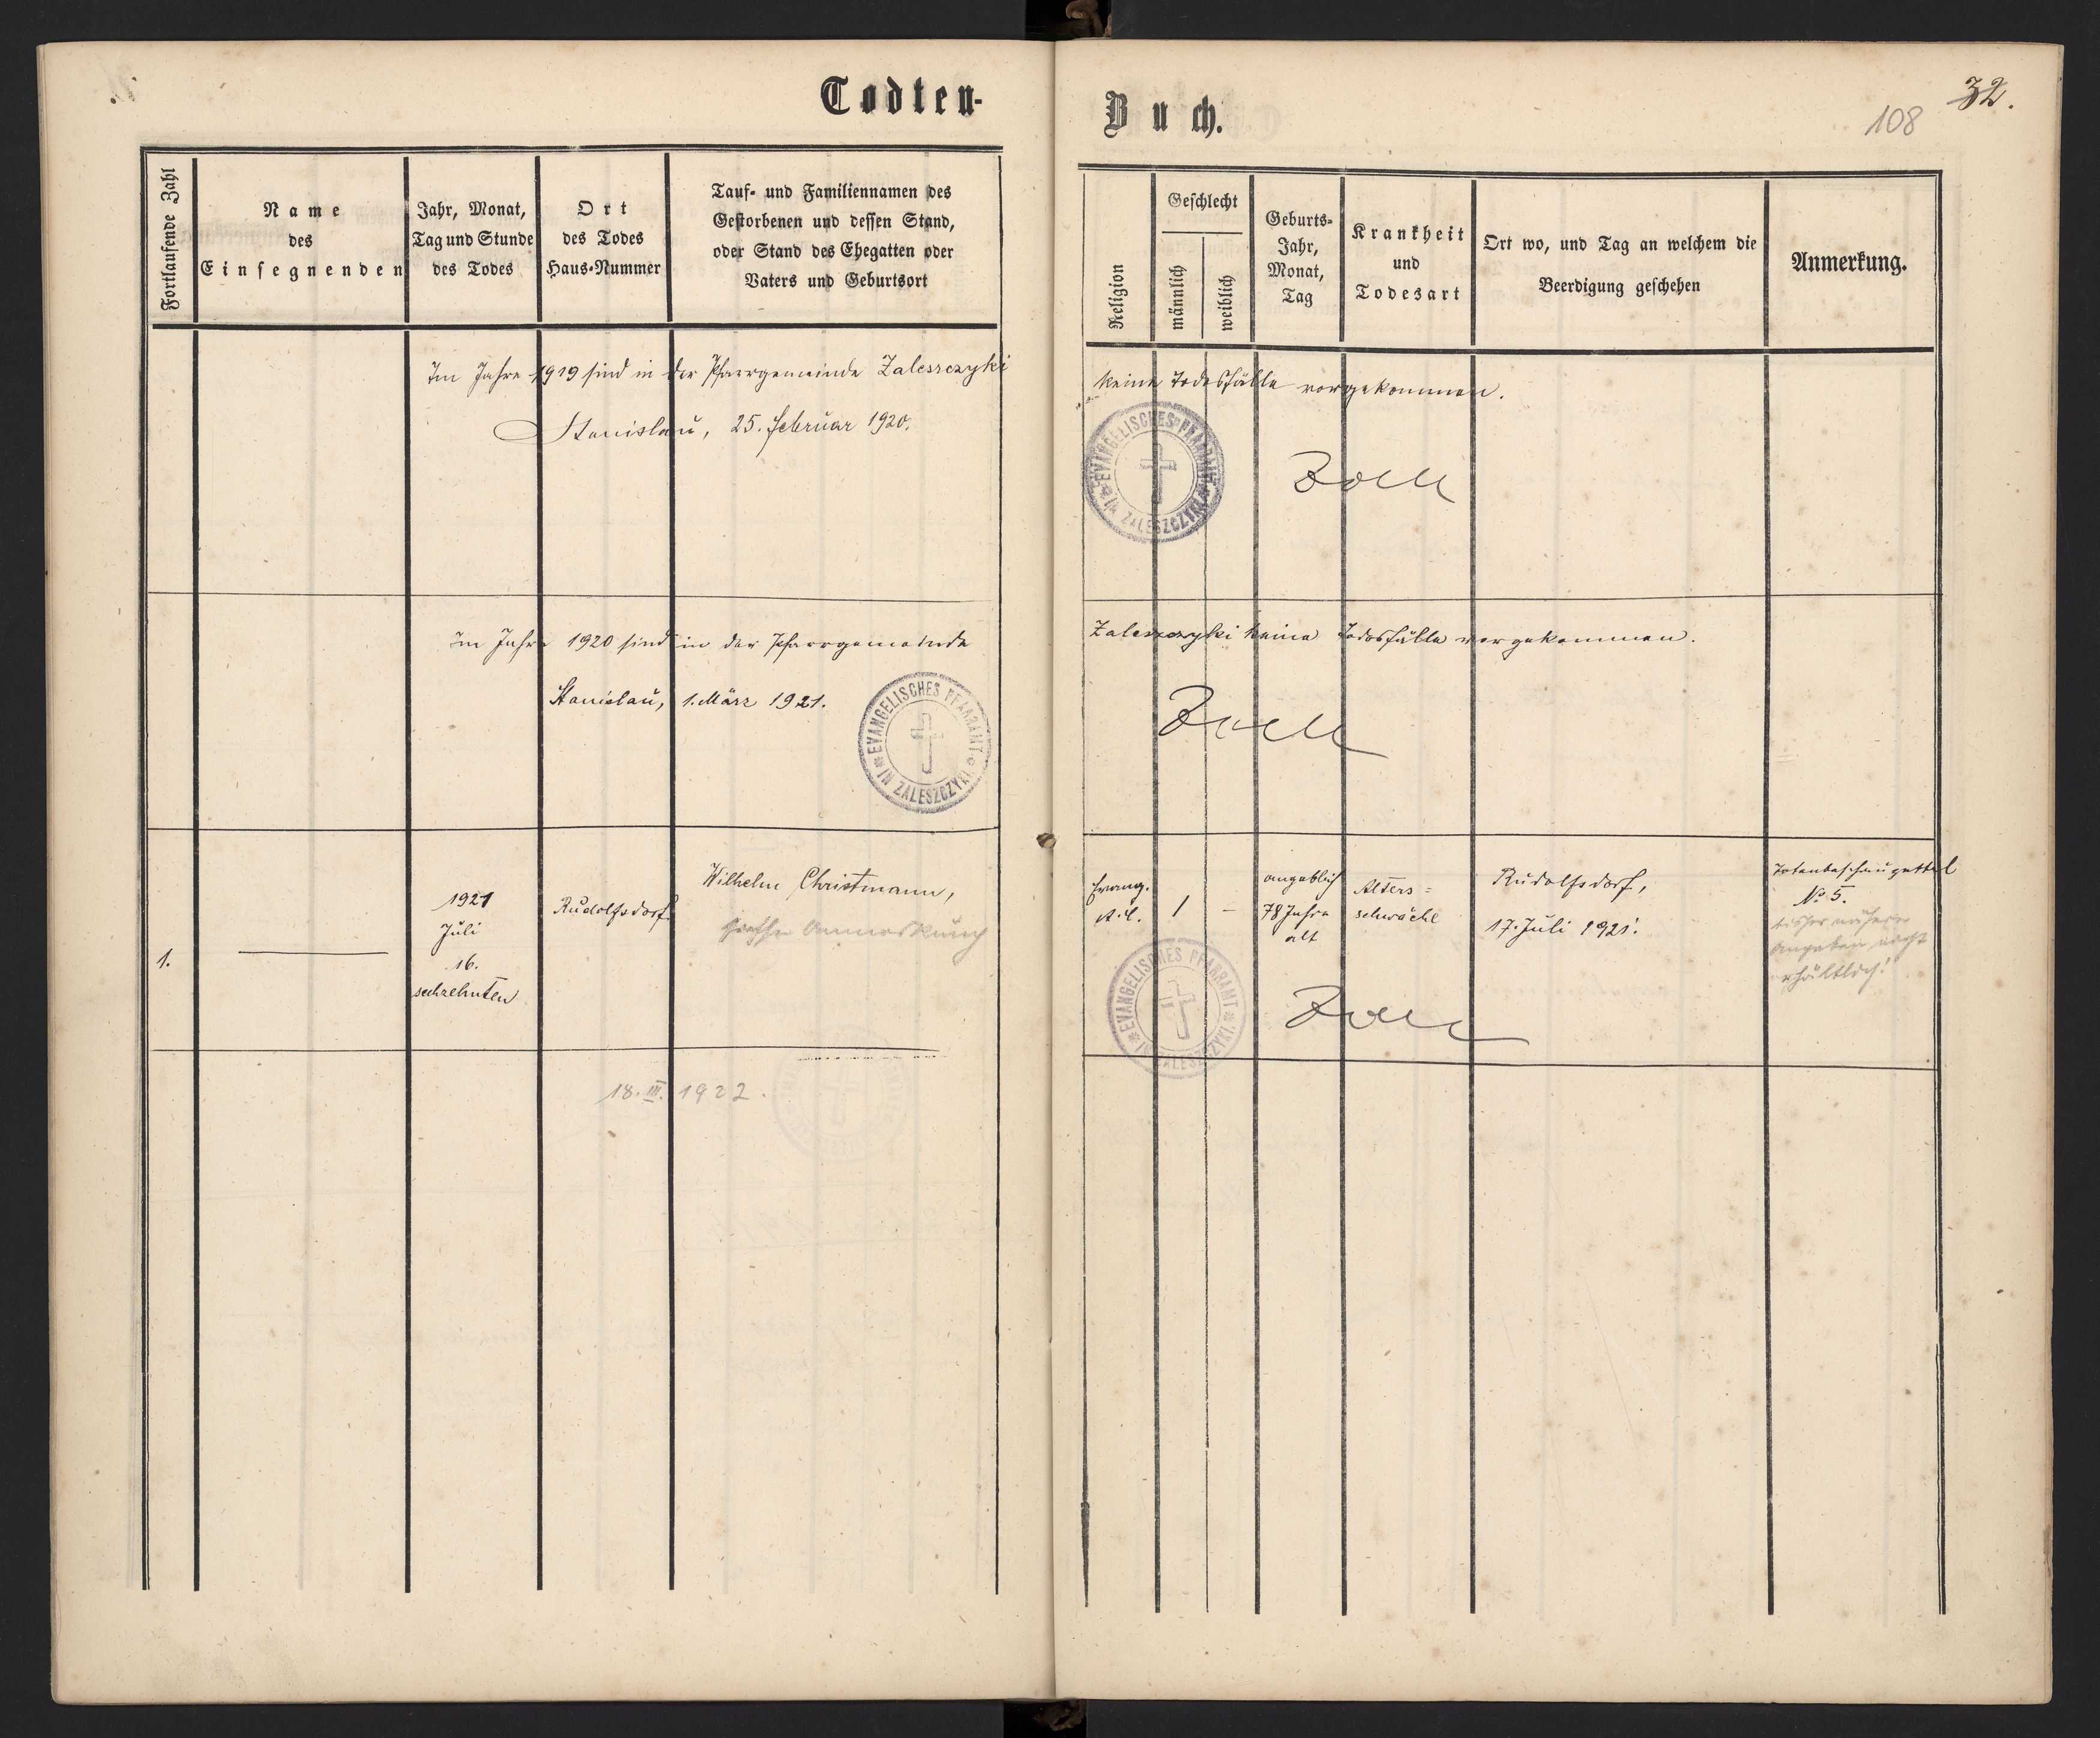 Todten-
Fortlaufende Zahl
Name
des
Einsegnenden
Jahr, Monat,
Tag und Stunde
des Todes
Ort
des Todes
Haus-Nummer
Tauf- und Familiennamen des
Gestorbenen und dessen Stand,
oder Stand des Ehegatten oder
Vaters und Geburtsort
Im Jahre 1919 sind in der Pfarrgemeinde Zaleszczyki
Stanislau, 25. Februar 1920.
Im Jahre 1920 sind in der Pfarrgemeinde
Stanislau, 1. März 1921.
EVANGELISCHES PFARRAMT
IN ZALESZCZYKI
1.
1921
Juli
16.
sechzehnten
Rudolfsdorf
Wilhelm Christmann,
siehe Anmerkung
18. III. 1922.
Buch.
108
32.
Religion
Geschlecht
männlich
weiblich
Geburts-
Jahr,
Monat,
Tag
Krankheit
und
Todesart
Ort wo, und Tag an welchem die
Beerdigung geschehen
Anmerkung.
keine Todesfälle vorgekommen.
EVANGELISCHES PFARRAMT
IN ZALESZCZYKI
Zaleszczyki keine Todesfälle vorgekommen.
Evang.
A. C.
1
-
angeblich
78 Jahre
alt
Alters=
schwäche
Rudolfsdorf,
17. Juli 1921.
Totenbeschauzettel
No 5.
bisher nähere
Angaben nicht
erhältlich!
EVANGELISCHES PFARRAMT
IN ZALESZCZYKI